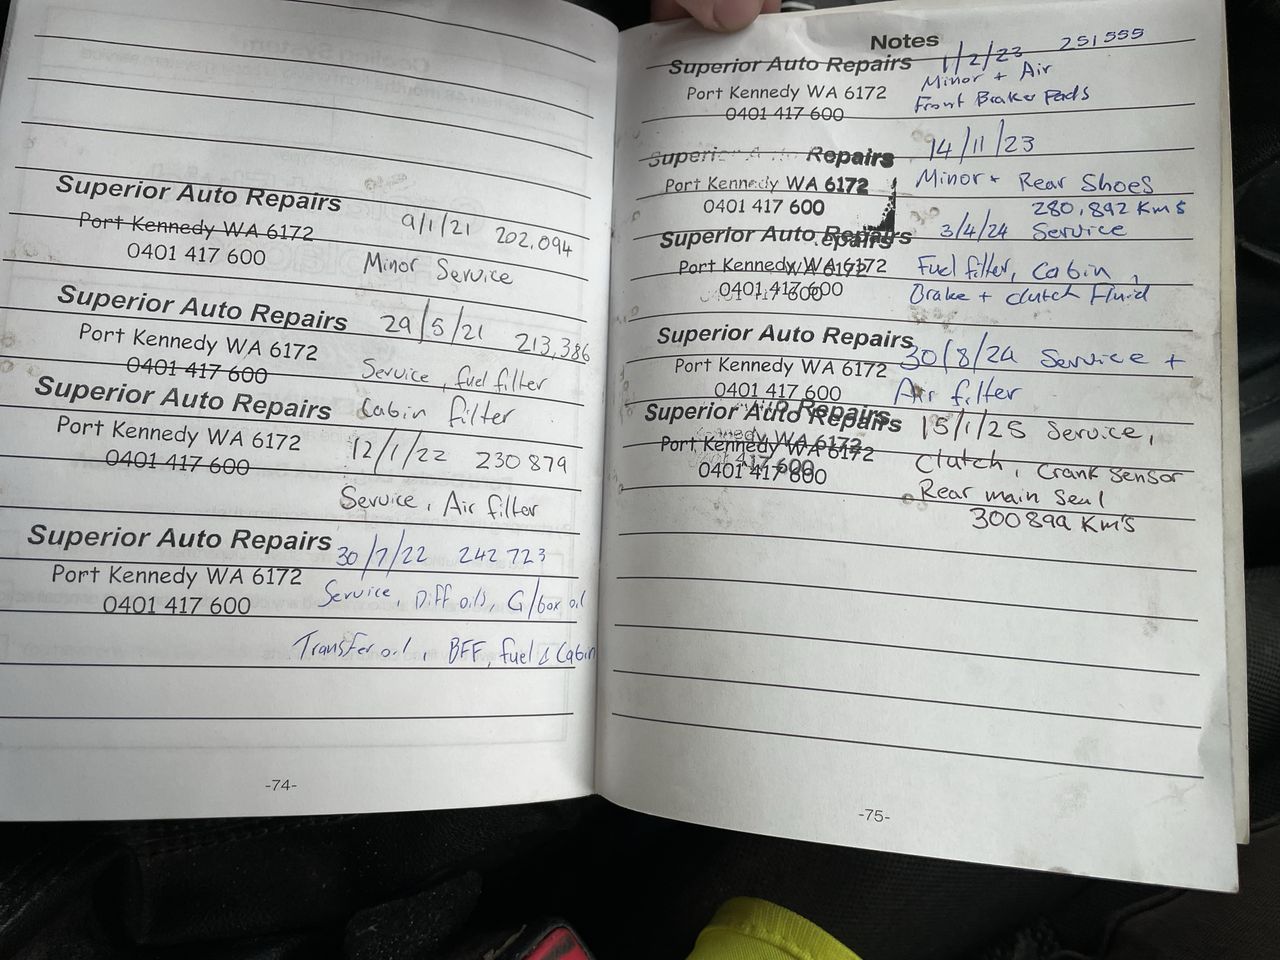 Superior Auto Repairs
Port Kennedy WA 6172
0401 417 600
9/1/21 202,094
Minor Service
Superior Auto Repairs
Port Kennedy WA 6172
0401 417 600
29/5/21 213,386
Service, fuel filter
Cabin filter
Superior Auto Repairs
Port Kennedy WA 6172
0401 417 600
12/1/22 230879
Service, Air filter
Superior Auto Repairs
Port Kennedy WA 6172
0401 417 600
30/7/22 242723
Service, Diff oils, G/box oil
Transfer oil, BFF, fuel & Cabin
-74-
Notes
Superior Auto Repairs
Port Kennedy WA 6172
0401 417 600
1/2/23 251555
Minor + Air
Front Brake Pads
Superi Repairs
Port Kennedy WA 6172
0401 417 600
14/11/23
Minor + Rear Shoes
280,892 Kms
Superior Auto Repairs
Port Kennedy WA 6172
0401 417 600
3/4/24 Service
Fuel filter, Cabin,
Brake + clutch Fluid
Superior Auto Repairs
Port Kennedy WA 6172
0401 417 600
30/8/24 Service +
Air filter
Superior Auto Repairs
Port Kennedy WA 6172
0401 417 600
15/1/25 Service,
Clutch, Crank sensor
Rear main Seal
300899 Km's
-75-